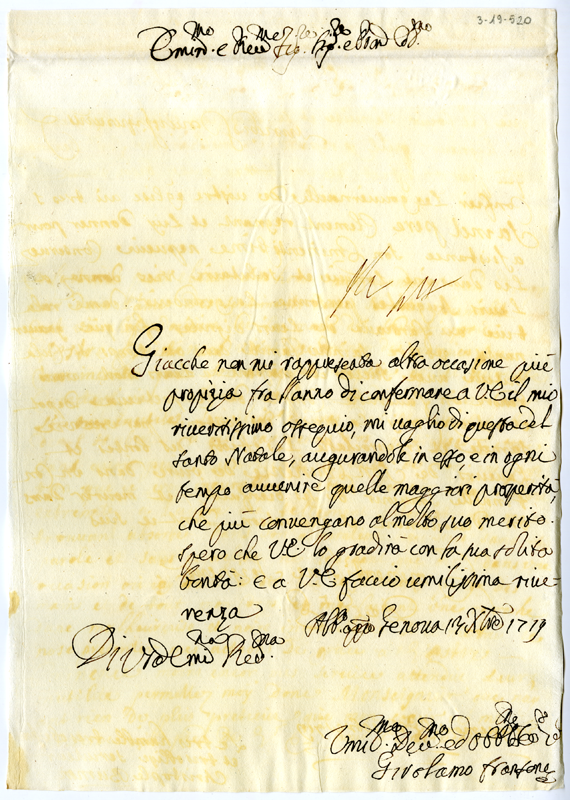 3-19-520
Emin.mo e Rev.mo Sig. Sig.re e Pron. Col.mo
Giacche non mi rappresenta altra occasione più
propizia fra l'anno di confermare a V.E. il mio
riverentissimo ossequio, mi vaglio di questa del
santo Natale, augurandole in esso, e in ogni
tempo auuenire quelle maggiori prosperità,
che più convengano al molto suo merito.
spero che V.E. lo gradirà con la sua solita
bontà: E a V.E. faccio umilissima rive-
renza
Genova 13 Xbre 1719
Di V.ra Emi.za Rev.ma
Umil.mo Dev.mo ed Obb.mo
Girolamo Franzone